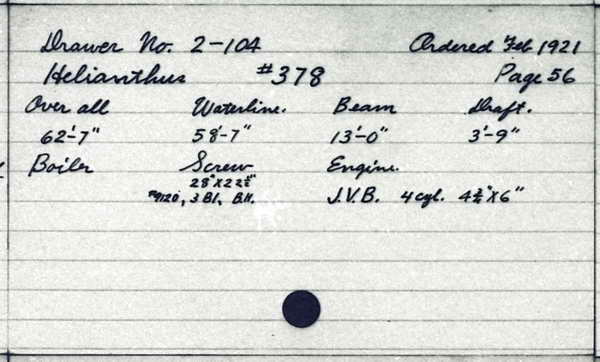 Drawer No. 2-104 Ordered Feb 1921
Helianthus #378 Page 56
Over all Waterline. Beam Draft.
62'-7" 58'-7" 13'-0" 3'-9"
Boiler Screw Engine.
28" X 22½"
#9120, 3 Bl, B.H. J.V.B. 4 cyl. 4¾" X 6"